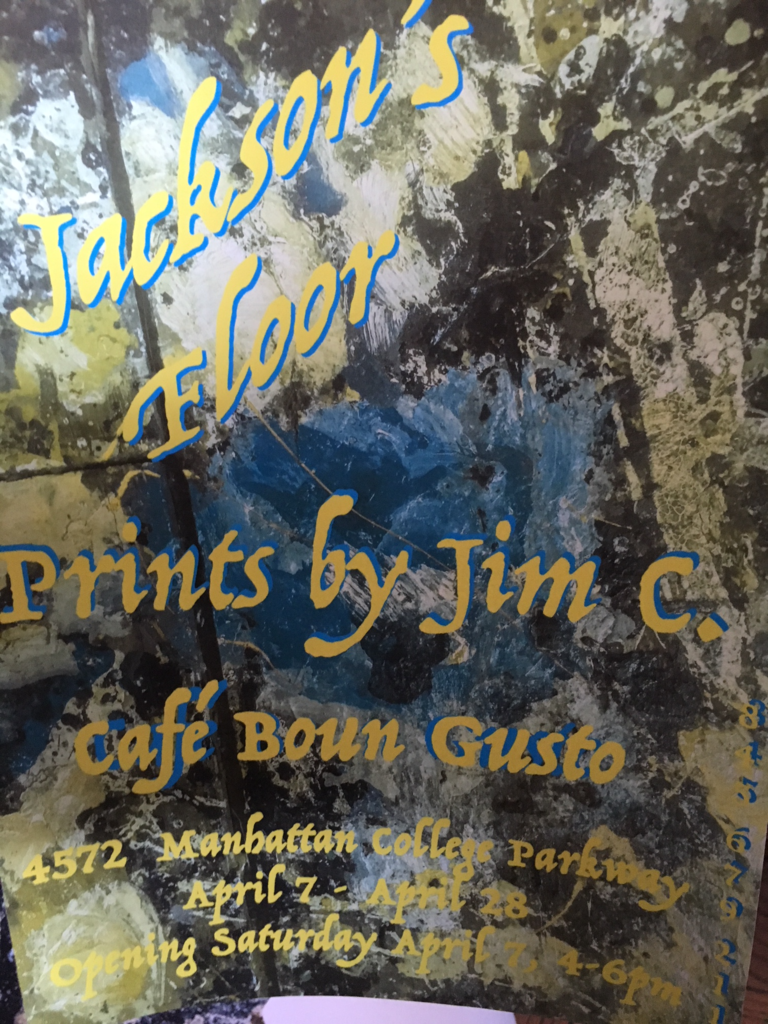 Jackson's
Floor
Prints by Jim C.
Café Boun Gusto
4572 Manhattan College Parkway
April 7 - April 28
Opening Saturday April 7, 4-6pm